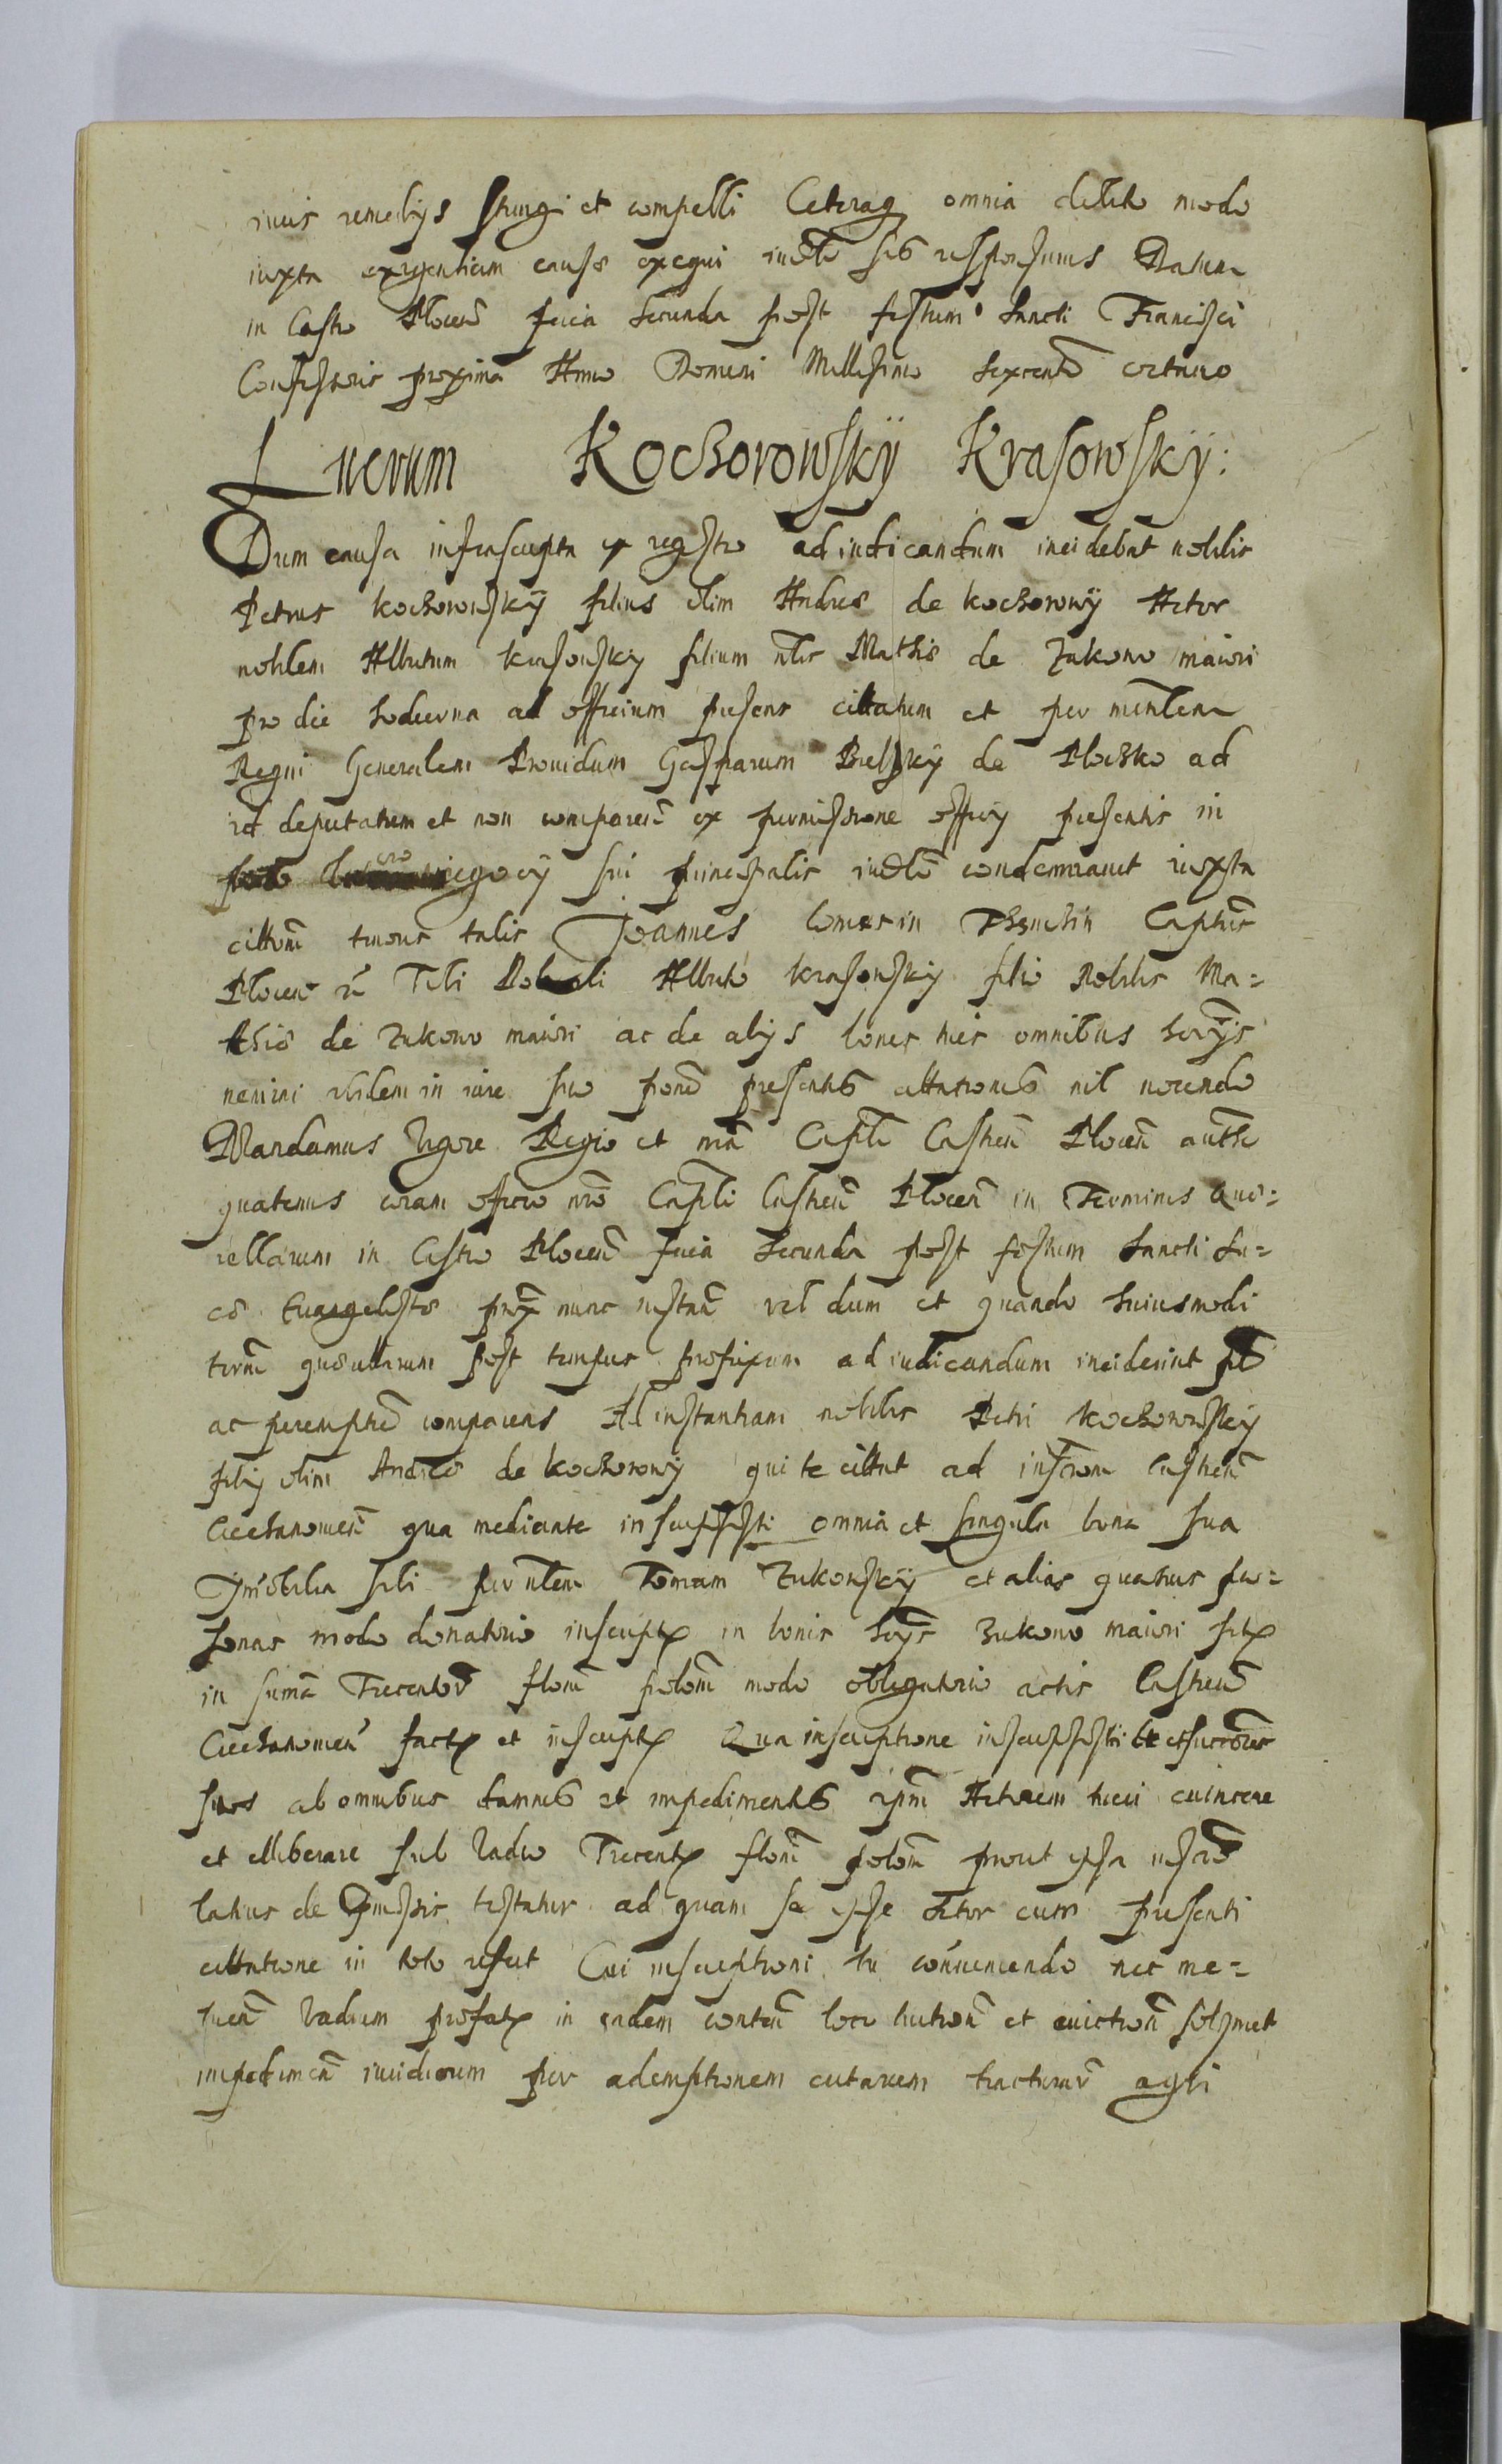 iuris remedijs stringi et compelli Ceteraq omnia debito modo
iuxta exigentiam causæ exequi iudtr sub responsurus Datum
in Castro Plocen feria secunda post festum Sancti Francisci
Confessoris proxima Anno Domini Millesimo sexcento octauo
Lucrum Kochorowskÿ Krasowskÿ:
Dum causa infrascripta ex regestro ad iudicandum incidebat nobilis
Petrus Kochorowskÿ filius olim Andreæ de Kochorowÿ Actor
nobilem Albertum Krasowskÿ filium nlis Mathiæ de Zukowo maiori
pro die hodierna ad officium præsens cittatum et per mintlem
Regni Generalem Prouidum Gasparum Bielskÿ de Plocko ad
id deputatum et non comparen ex permissione officij præsentis in
lucro negocÿ sui principalis iudtr condemnauit iuxta
cittonm tenoris talis Joannes Comes in Thenchin Captnes
Plocen Tibi Nobili Alberto Krasowskÿ filio Nobilis Ma=
thiæ de Zukowo maiori ac de alijs bonis tuis omnibus
nemini ibidem in iure suo præsentib cittationib nil nocendo
Mandamus vigore Regio et nra Captli Castren Plocen auth
quatenus coram officio nro Captli Castren Plocen in Terminis Que=
rellarum in Castro Plocen feria Secunda post festum Sancti Lu=
cæ Euangelistæ prox nunc instan vel dum et quando huiusmodi
termi quærellarum post tempus præfixum ad iudicandum inciderint
ac peremptrie compareas Ad instantiam nobilis Petri Kochorowskÿ
filij olim Andreæ de Kochorowÿ qui te cittat ad inscrom Castren
Ciechanowien qua mediante inscripsisti omnia et singula bona sua
Imobilia sibi per nlem Tomam Zukowskÿ et alias quatuor per=
sonas modo donatorio inscripta in bonis Zukowo maiori sita
in suma Trecentor floren polon modo obligatorio actis Castren
Ciechanowien facta et inscripta Qua inscriptione inscripsisti te et succores
tuos ab omnibus damnis et impedimentis ipm Actorem tueri euincere
et elliberare sub vadio Trecentor floren polon prout ipsa inscro
latius de Præmissis testatur ad quam se ipse Actor cum præsenti
cittatione in toto refert Cui inscriptioni tu contraueniendo nec me=
tuen vadium præfatum in eadem conten loco tuitionis et euictionis
impedimen per ademptionem agri